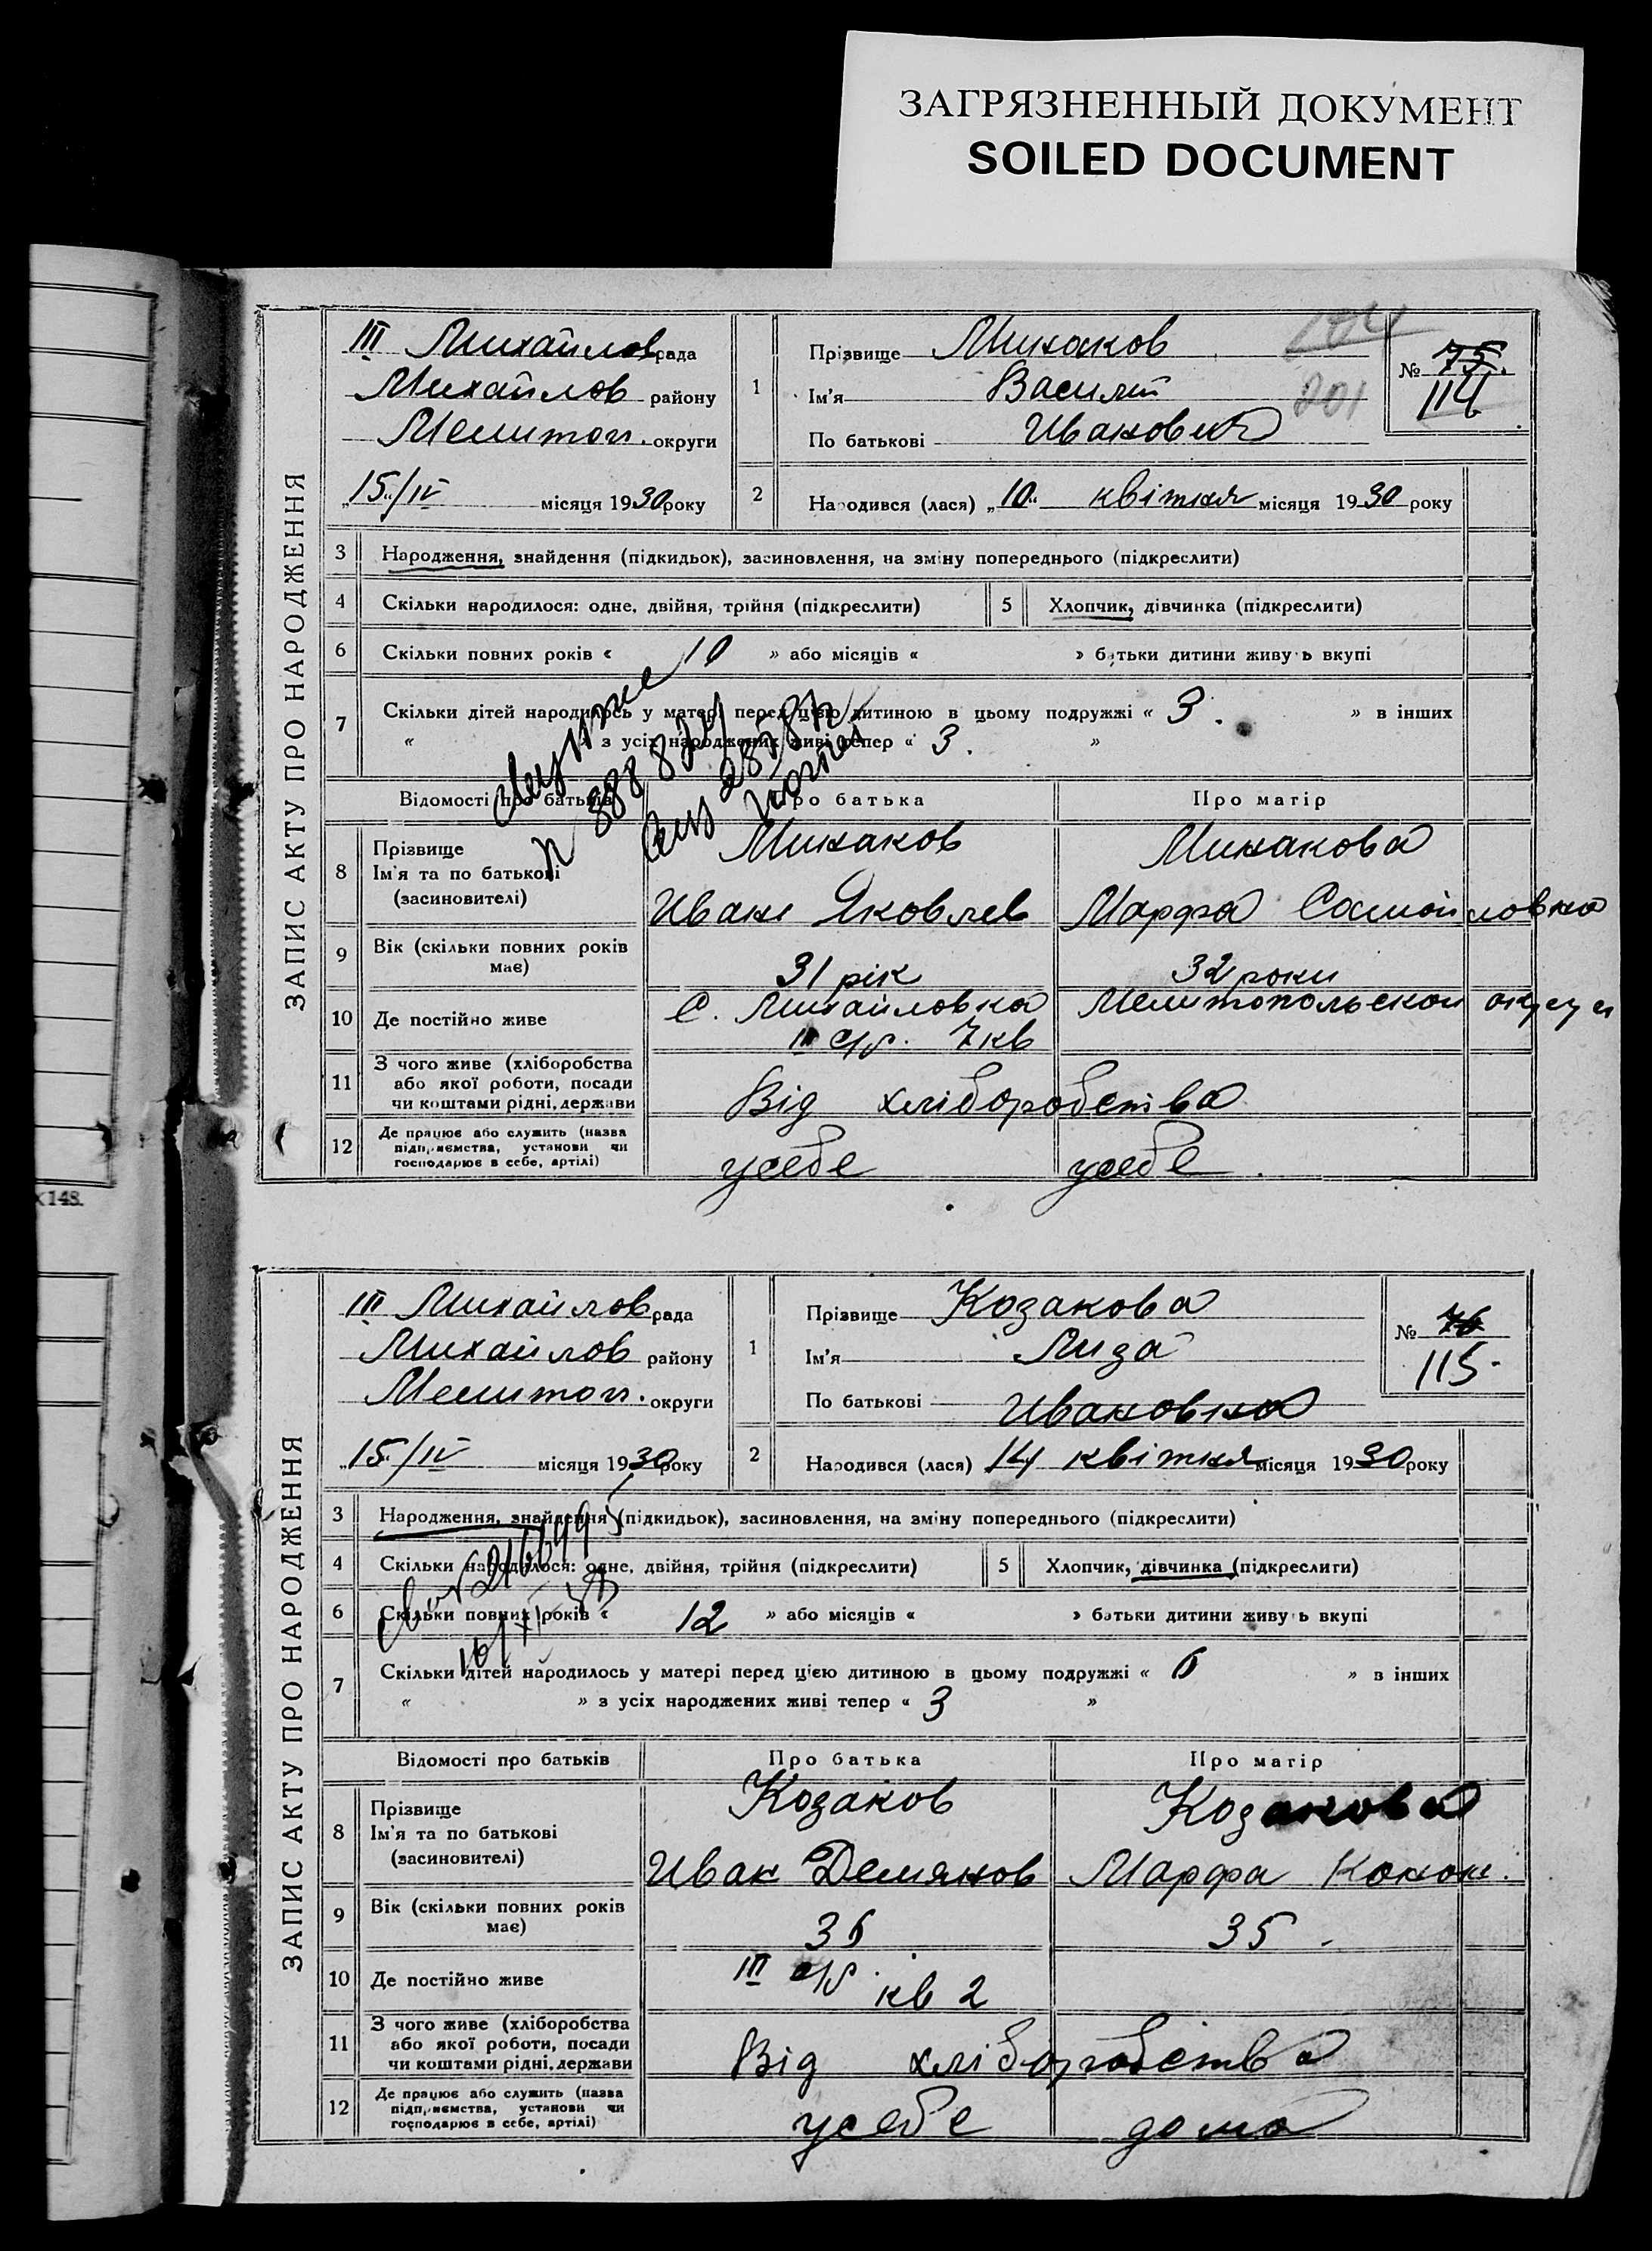 ЗАГРЯЗНЕННЫЙ ДОКУМЕНТ
SOILED DOCUMENT
х148.
ЗАПИС АКТУ ПРО НАРОДЖЕННЯ
III Михайлов рада
Михайлов району
Мелитоп. округи
„15“/IV місяця 1930 року
1
Прізвище Минаков
Ім'я Василий
По батькові Иванович
201
№ 75.
114
2
Народився (лася) „10“ квітня місяця 1930 року
3 Народження, знайдення (підкидьок), засиновлення, на зміну попереднього (підкреслити)
4 Скільки народилося: одне, двійня, трійня (підкреслити)
5 Хлопчик, дівчинка (підкреслити)
6 Скільки повних років « 10 » або місяців « » батьки дитини живуть вкупі
7 Скільки дітей народилось у матері перед цією дитиною в цьому подружжі « 3. » в інших
« » з усіх народжених живі тепер « 3. »
Відомості про батьків Про батька Про матір
8 Прізвище
Ім'я та по батькові
(засновителі)
Минаков Минакова
Иван Яковлев Марфа Самойловна
9 Вік (скільки повних років має) 31 рік 32 роки
10 Де постійно живе с. Михайловка Мелитопольскои округи
III с/р. 7 кв
11 З чого живе (хліборобства
або якої роботи, посади
чи коштами рідні, держави
Від хліборобства
12 Де працює або служить (назва
підприємства, установи чи
господарює в себе, артілі)
у себе у себе.
ЗАПИС АКТУ ПРО НАРОДЖЕННЯ
III Михайлов рада
Михайлов району
Мелитоп. округи
„15“/IV місяця 1930 року
1
Прізвище Козакова
Ім'я Лиза
По батькові Ивановна
№ 76
115.
2
Народився (лася) 14 квітня місяця 1930 року
3 Народження, знайдення (підкидьок), засиновлення, на зміну попереднього (підкреслити)
4 Скільки народилося: одне, двійня, трійня (підкреслити)
5 Хлопчик, дівчинка (підкреслити)
6 Скільки повних років « 12 » або місяців « » батьки дитини живуть вкупі
7 Скільки дітей народилось у матері перед цією дитиною в цьому подружжі « 6 » в інших
« » з усіх народжених живі тепер « 3 »
Відомості про батьків Про батька Про матір
8 Прізвище
Ім'я та по батькові
(засиновителі)
Козаков Козакова
Иван Демянов Марфа Конон.
9 Вік (скільки повних років має) 36 35.
10 Де постійно живе III с/р. кв 2
11 З чого живе (хліборобства
або якої роботи, посади
чи коштами рідні, держави
Від хліборобства
12 Де працює або служить (назва
підприємства, установи чи
господарює в себе, артілі)
у себе дома